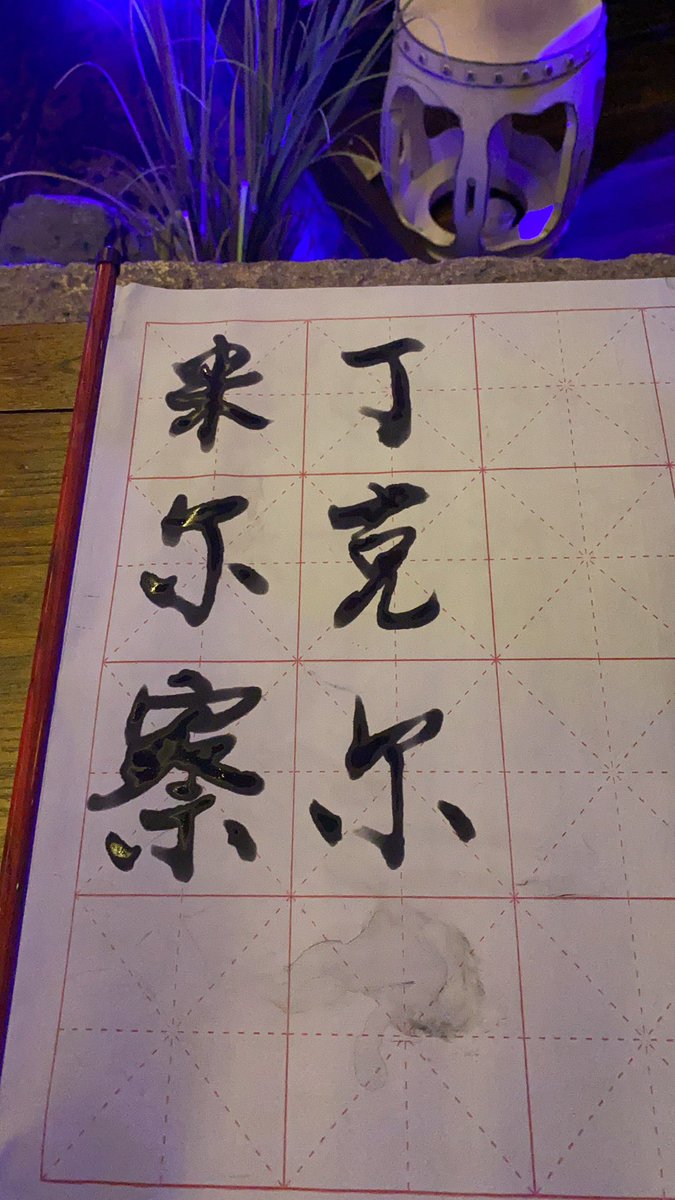 米尔察
丁克尔